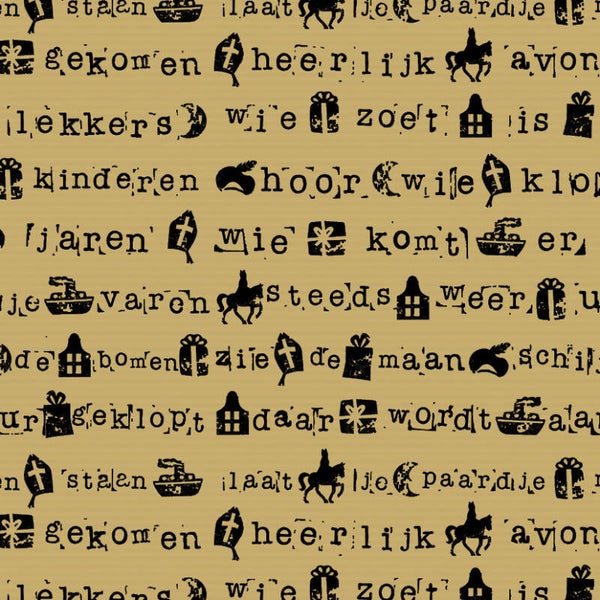 en staan laat je paardje
gekomen heerlijk avon
lekkers wie zoet is
kinderen hoor wie klo
jaren wie komt er
je varen steeds weer u
de bomen zie de maan schij
ur geklopt daar wordt aan
en staan laat je paardje
gekomen heerlijk avon
lekkers wie zoet is